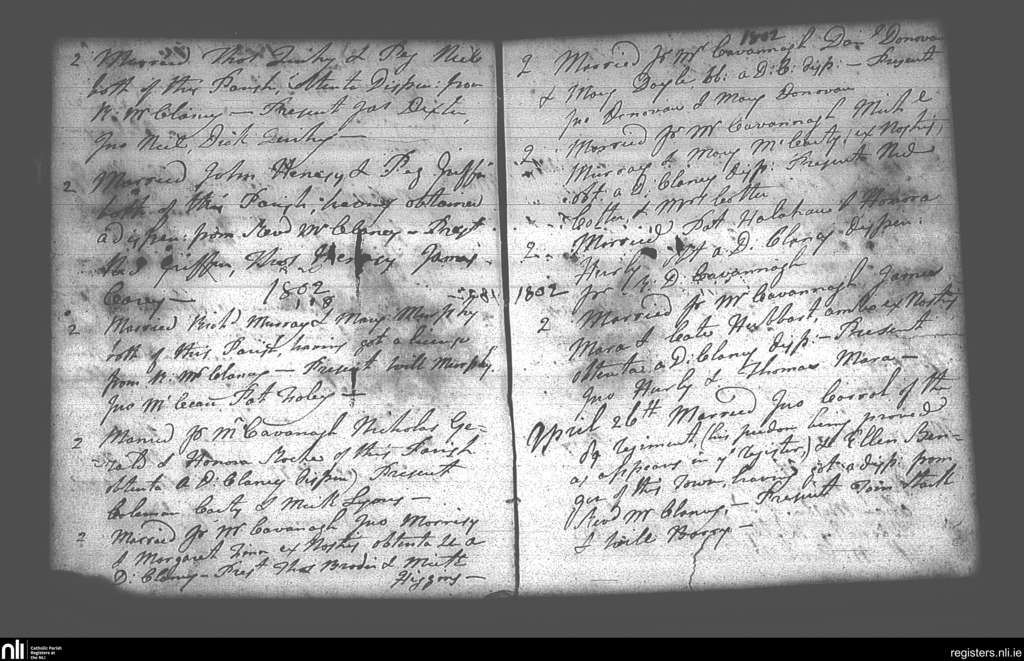 2 Married Thos Quirky & Peg Neil
both of this Parish, obtenta Dispen: from
R. Mc Claney — Present Jas Dixter,
Jno Neil, Dick
2 Married John Henesy & Peg Griffin
both of this Parish, having obtained
a dispen: from Revd Mr Claney — Prest
Ned Griffin, Thos Henesy James
Carey —
1802
2 Married Richd Murray & Mary Murphy
both of this Parish, having got a licence
from R. Mr Claney — Present Will Murphy,
Jno McCean Pat Foley —
2 Married Jr Mr Cavanagh Nicholas Ge-
rald & Honora Roche of this Parish
obtenta a D: Claney Dispen) Present
Coleman Carty & Mick Lyons —
2 Married Jr Mr Cavanagh Jno Morrisy
& Margaret ex Nostris obtenta a
D: Claney — Prest Thos Broder & Mich
Higgons —
1802
2 Married Jr Mr Cavannagh Dan Donovan
& Mary Doyle, ob: a D: C: disp: — Present
Jno Donovan & Mary Donovan
2 Married Jr Mr Cavannagh Mich l
Murray & Mary McCarty, ex Nostris,
obt. a D: Claney disp: Present Ned
Cotter, & Mrs Cotter
2 Married Pat Halahan & Honora
Hurly obt a D: Claney dispen:
Jr R. D. Cavannagh
1802
2 Married Jr Mr Cavannagh James
Mara & Cate Hubbart ambo ex Nostris
obtenta a D: Claney disp: — Present
Jno Hurly & Thomas Mara —
April 26th Married Jno Carrol of the
89 regiment, (his freedom being proved
as appears in ye register,) & Ellen Ben-
ger of this Town, having got a disp: from
Revd Mr Claney, — Present Tom Stack
& Will Barry —
nli
Catholic Parish
Registers at
the NLI
registers.nli.ie